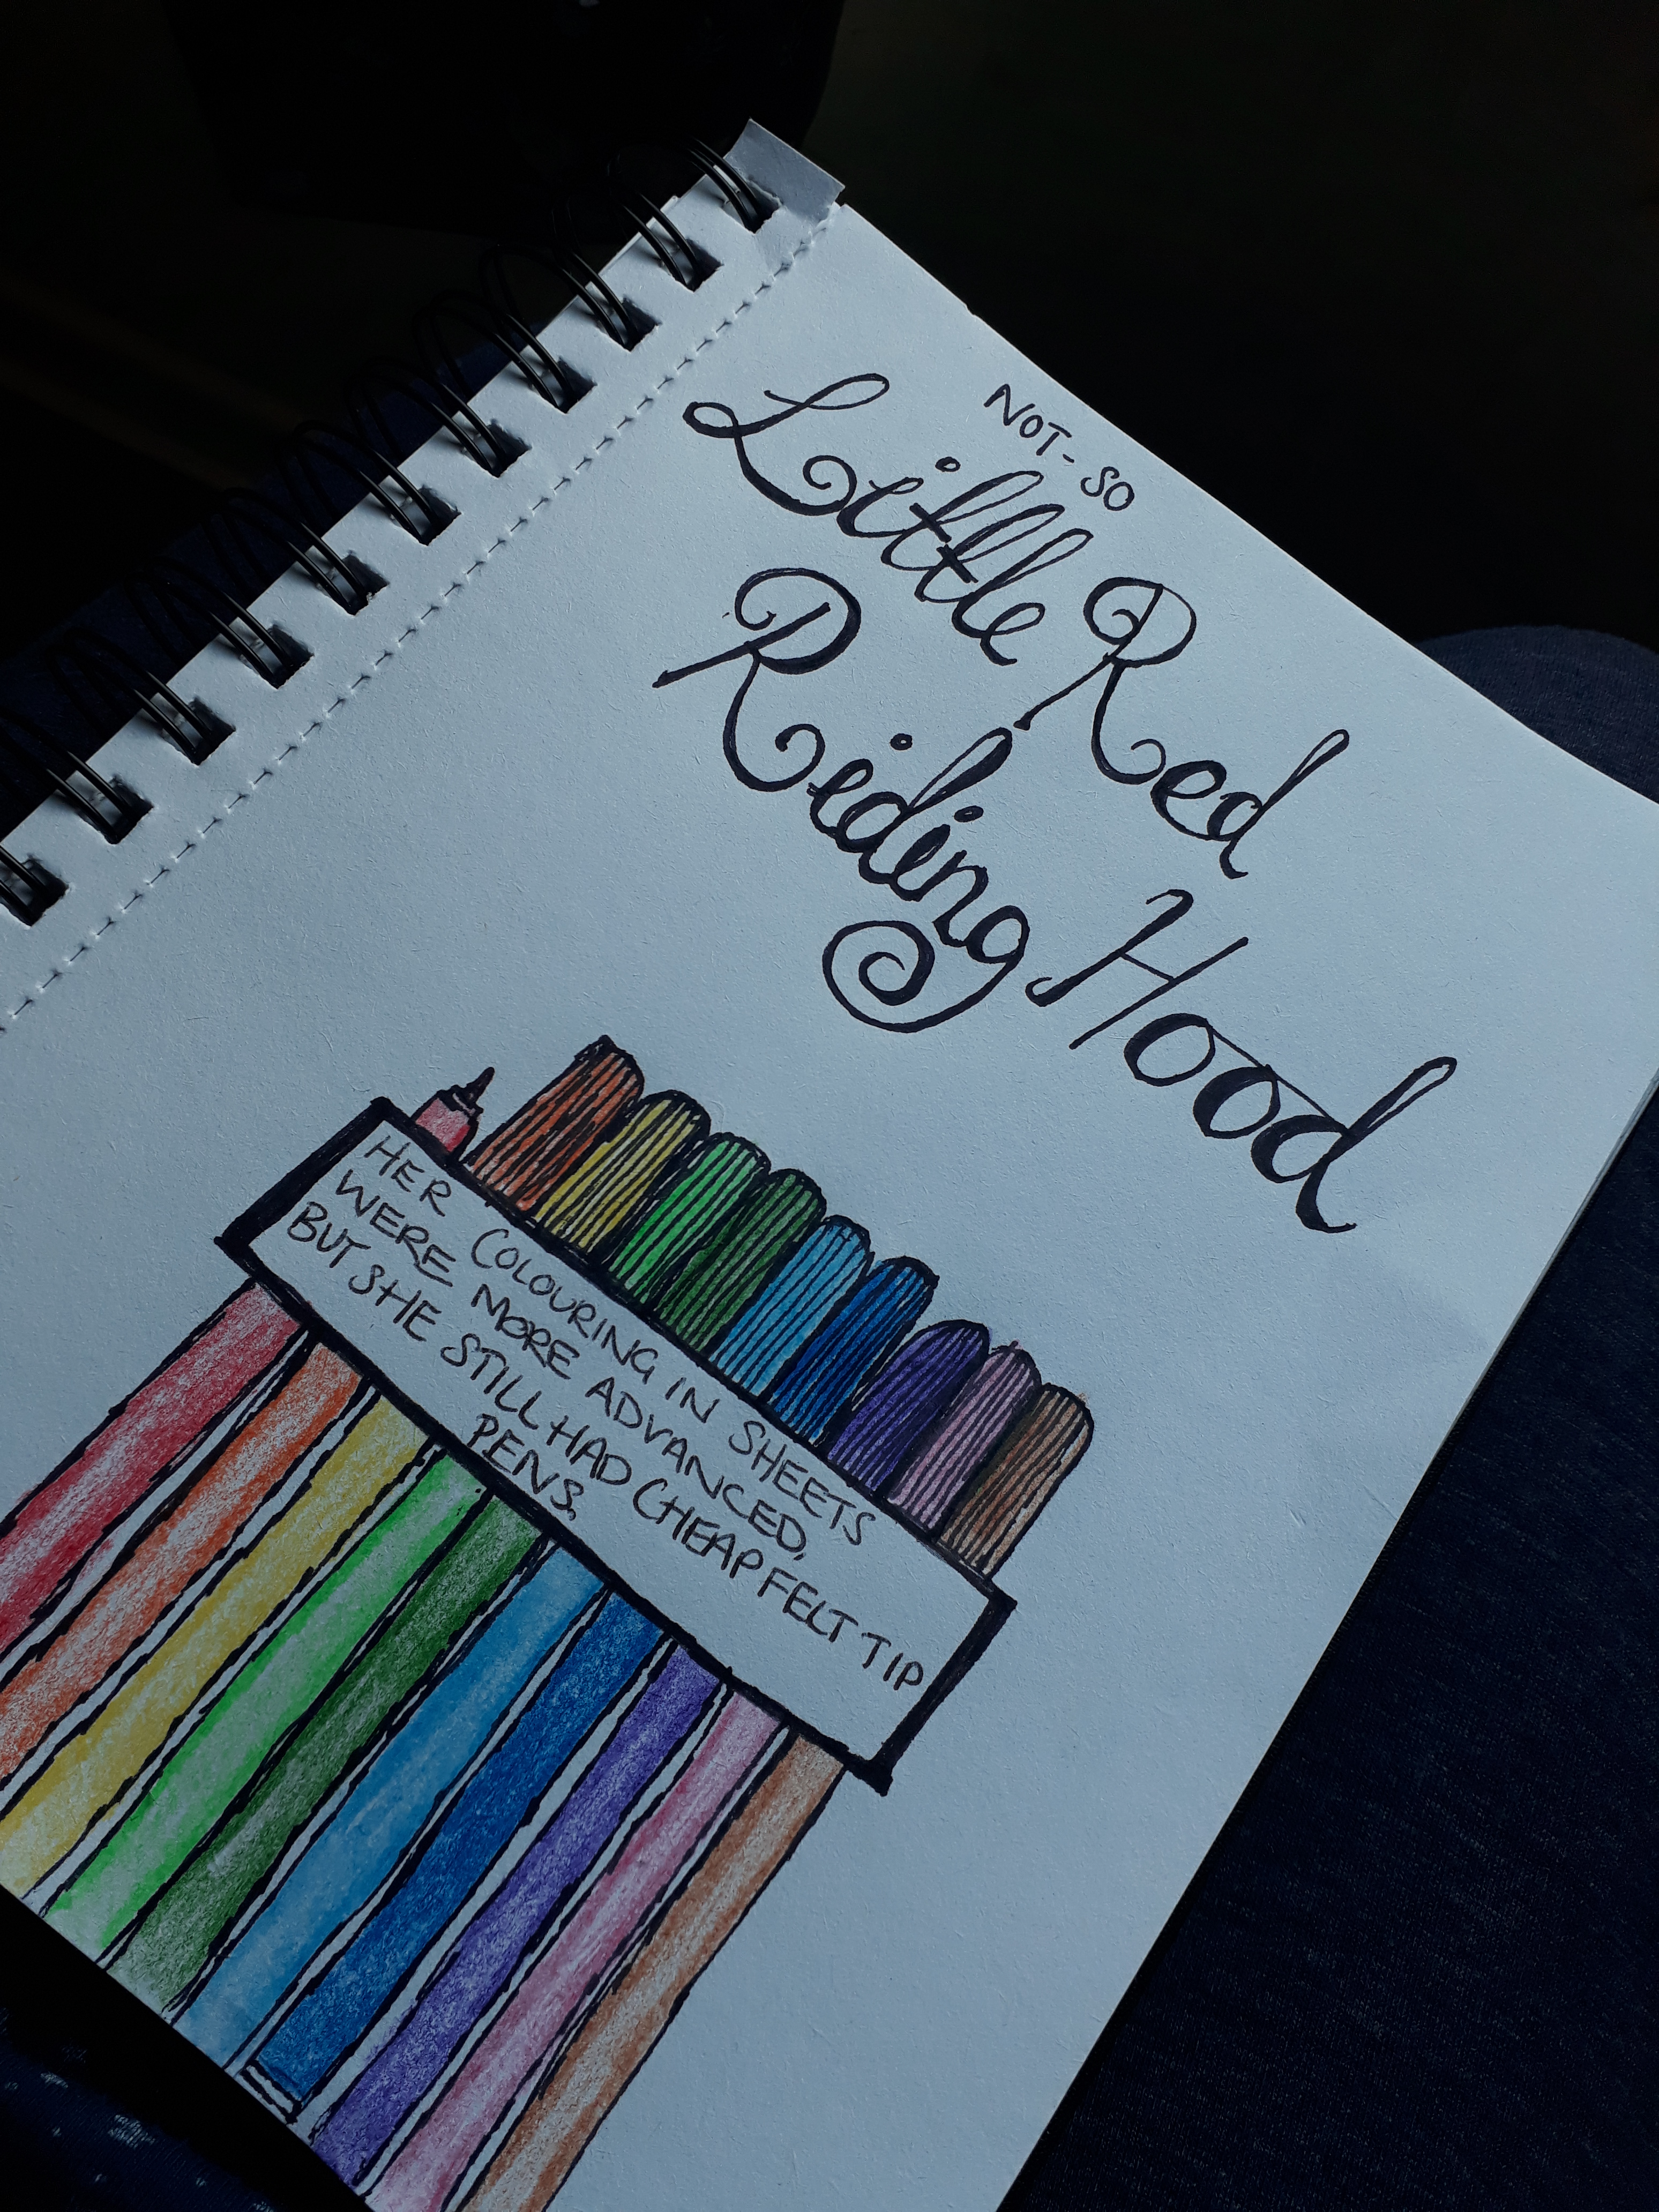 NOT-SO
Little Red
Riding Hood
HER COLOURING IN SHEETS
WERE MORE ADVANCED,
BUT SHE STILL HAD CHEAP FELT TIP
PENS.